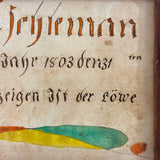 Schleman
Jahr 1803 den 31ten
zeigen Ist der Löwe